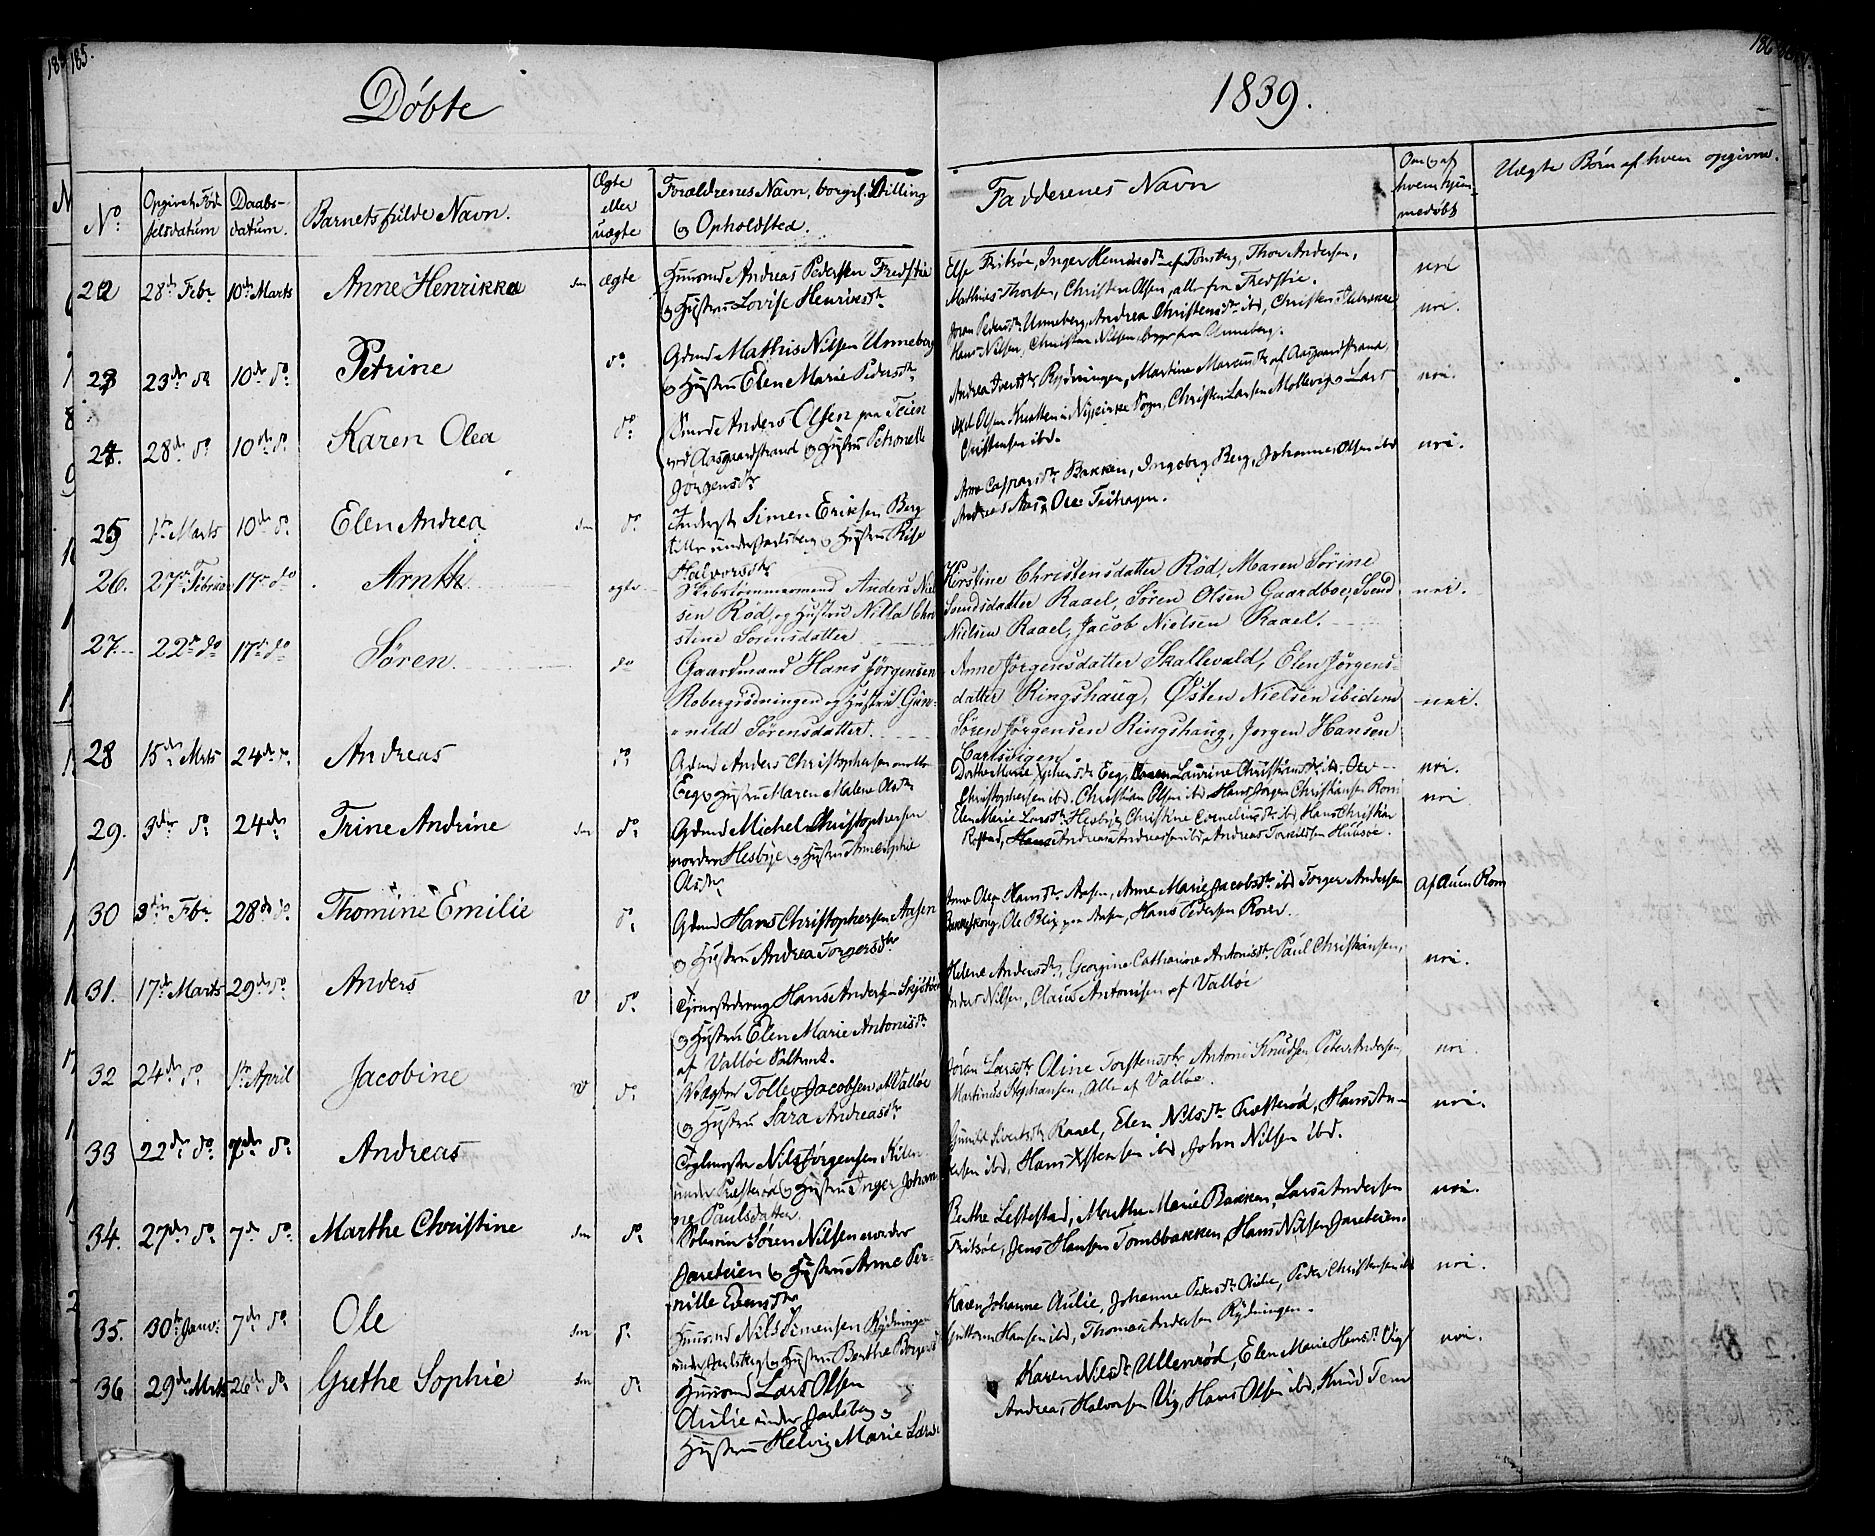 185.
Døbte
1839.
No.
Opgivet Fødselsdatum
Daabsdatum.
Barnets fulde Navn.
Ægte eller uægte
Forældrenes Navn, borgl. Stilling og Opholdsted.
Faddernes Navn
Om og af hvem hjemmedøbt
Uægte Børn af hvem opgivne.
22 28de Febr 10de Marts Anne Henrikka ægte
Huusmd Andreas Pedersen Fredstie
og Hustru Lovise Henriksdr
Else Fritsøe, Inger Henriksdr af Tønsberg, Thor Andersen,
Mathies Thorsen, Christen Olsen, alle fra Fredstie.
nei
23 23de do 10de do Petrine do
Gdmd Mathis Nilsen Unneberg
og Hustru Elen Marie Pedersdr
Joran Pedersdr Unneberg, Andrea Christensdr ibd, Christen
Hans Nilsen, Christen Nilsen, begge fra Unneberg.
nei.
24. 28de do 10de do Karen Olea do
Anders Olsen paa Teien
ved Aasgaardstrand og Hustru Petronelle
Jørgensdr
Andrea Iversdr Rydningen, Martine Marcusdr af Aasgaardstrand,
Olsen Knatten i Sogn, Christen Larsen Mollevig, Lars
Christensen ibd.
nei.
25 1te Marts 10de do Elen Andrea do
Inderst Simen Eriksen Berg
under Jarlsberg og Hustru
Halvorsdr
Anne Caspersdr Bakken, Ingeborg Berg, Johannes Olsen ibd
Andreas Aas, Ole Teihagen.
nei.
26. 27de Februar 17de do Arnth ægte
Skibstømmermand Anders Niel-
sen Rød, og Hustru Nilla Chri-
stine Sørensdatter
Kerstine Christensdatter Rød, Maren Sørine
Svendsdatter Raael, Sören Olsen Gaardboe, Svend
Nielsen Raael, Jacob Nielsen Raael.
nei.
27. 22de do 17de do Søren. do
Gaardmand Hans Jørgensen
Robergrødningen og Hustru Gun-
nild Sørensdatter.
Anne Jörgensdatter Skallevald, Elen Jørgens-
datter Ringshaug, Østen Nielsen ibidem
Sören Jörgensen Ringshaug, Jørgen Hansen
Carlsvigen.
nei.
28 15de Mrts 24de do Andreas do
Gdmd Anders Christophersen
Eeg og Hustru Maren Malene Olsdr
Eeg, Laurine Christiansdr ibd. Ole
Christophersen ibd. Christian Olsen ibd Hans Jørgen Christiansen Rom
nei.
29. 3de do 24de Trine Andrine do
Gdmd Michel Christophersen
nordre Hesbye og Hustru Anne Sophie
Olsdr
Elen Marie Larsdr Hesbye, Christine Corneliusdr ibd Hans Christian
Andreas Andreassen ibd, Andreas Torkildsen Huusøe.
nei
30 3de Fbr 28de do Thomine Emilie do
Gdmd Hans Christophersen Aasen
og Hustru Andrea Torgersdr
Anne Olea Hansdr Aasen, Anne Marie Jacobsdr ibd Torger Andersen
Ole Blix paa Aasen, Hans Pedersen Roren.
Af Auen Rom
31. 17de Marts 29de do Anders V do
Hans Andersen
og Hustru Elen Marie Antonisdr
af Valløe Saltverk.
Helene Andersdr, Georgine Catharine Antonisdr, Paul Christiansen,
Anders Nilsen, Claus Antonisen af Valløe
nei.
32 24de do 1te April Jacobine V do
Vægter Tollev Jacobsen af Valløe
og Hustru Sara Andreasdr
Jøran Larsdr Oline Torstensdr Antoni Knudsen Peter Andersen,
Martinus Stephansen, Alle af Valløe.
nei.
33 22de do 7de do Andreas
Teglmester Nils Jørgensen Kilen
under Præsterød og Hustru Inger Johan-
ne Paulsdatter
Gunild Sivertsdr Raael, Elen Nilsdr Præsterød, Hans An-
dersen ibd, Hans Østensen ibd, John Nilsen ibd.
nei.
34. 27de do 7de do Marthe Christine do
Søren Nilsen nordre
Jareteien og Hustru Anne Per-
nille Evensdr
Berthe Leftestad, Marthe Marie Bakken, Lars Andersen
Fritsøe, Jens Hansen Tomsbakken, Hans Nilsen Jareteien.
nei.
35. 30te Janv. 7de do Ole do
Huusmd Nils Simensen Rydningen
under Jarlsberg og Hustru Berthe Børgersdr
Karen Johanne Aulie, Johanne Pedersdr Aulie, Peder Christensen ibd
Guttorm Hansen ibd, Thomas Andersen Rydningen.
nei.
36 29de Mrts 26de do Grethe Sophie do
Huusmd Lars Olsen
Aulie under Jarlsberg og
Hustru Helvig Marie Larsdr
Karen Nilsdr Ullenrød, Elen Marie Hansdr Vig
Andreas Halvorsen Vig, Hans Olsen ibd, Knud Tem
nei.